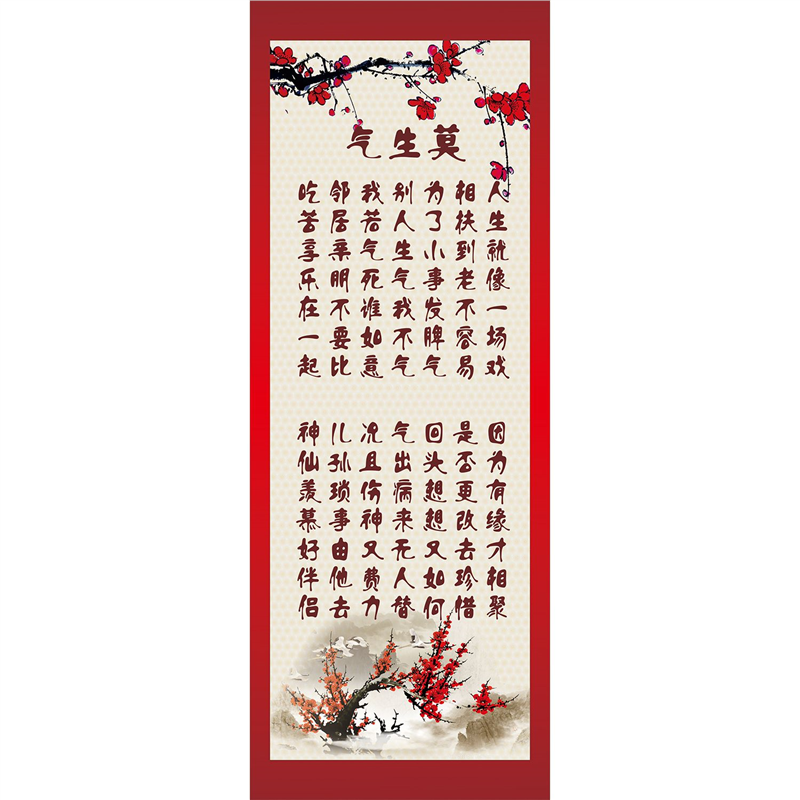 莫生气
人生就像一场戏
因为有缘才相聚
相扶到老不容易
是否更改去珍惜
为了小事发脾气
回头想想又如何
别人生气我不气
气出病来无人替
我若气死谁如意
况且伤神又费力
邻居亲朋不要比
儿孙琐事由他去
吃苦享乐在一起
神仙羡慕好伴侣